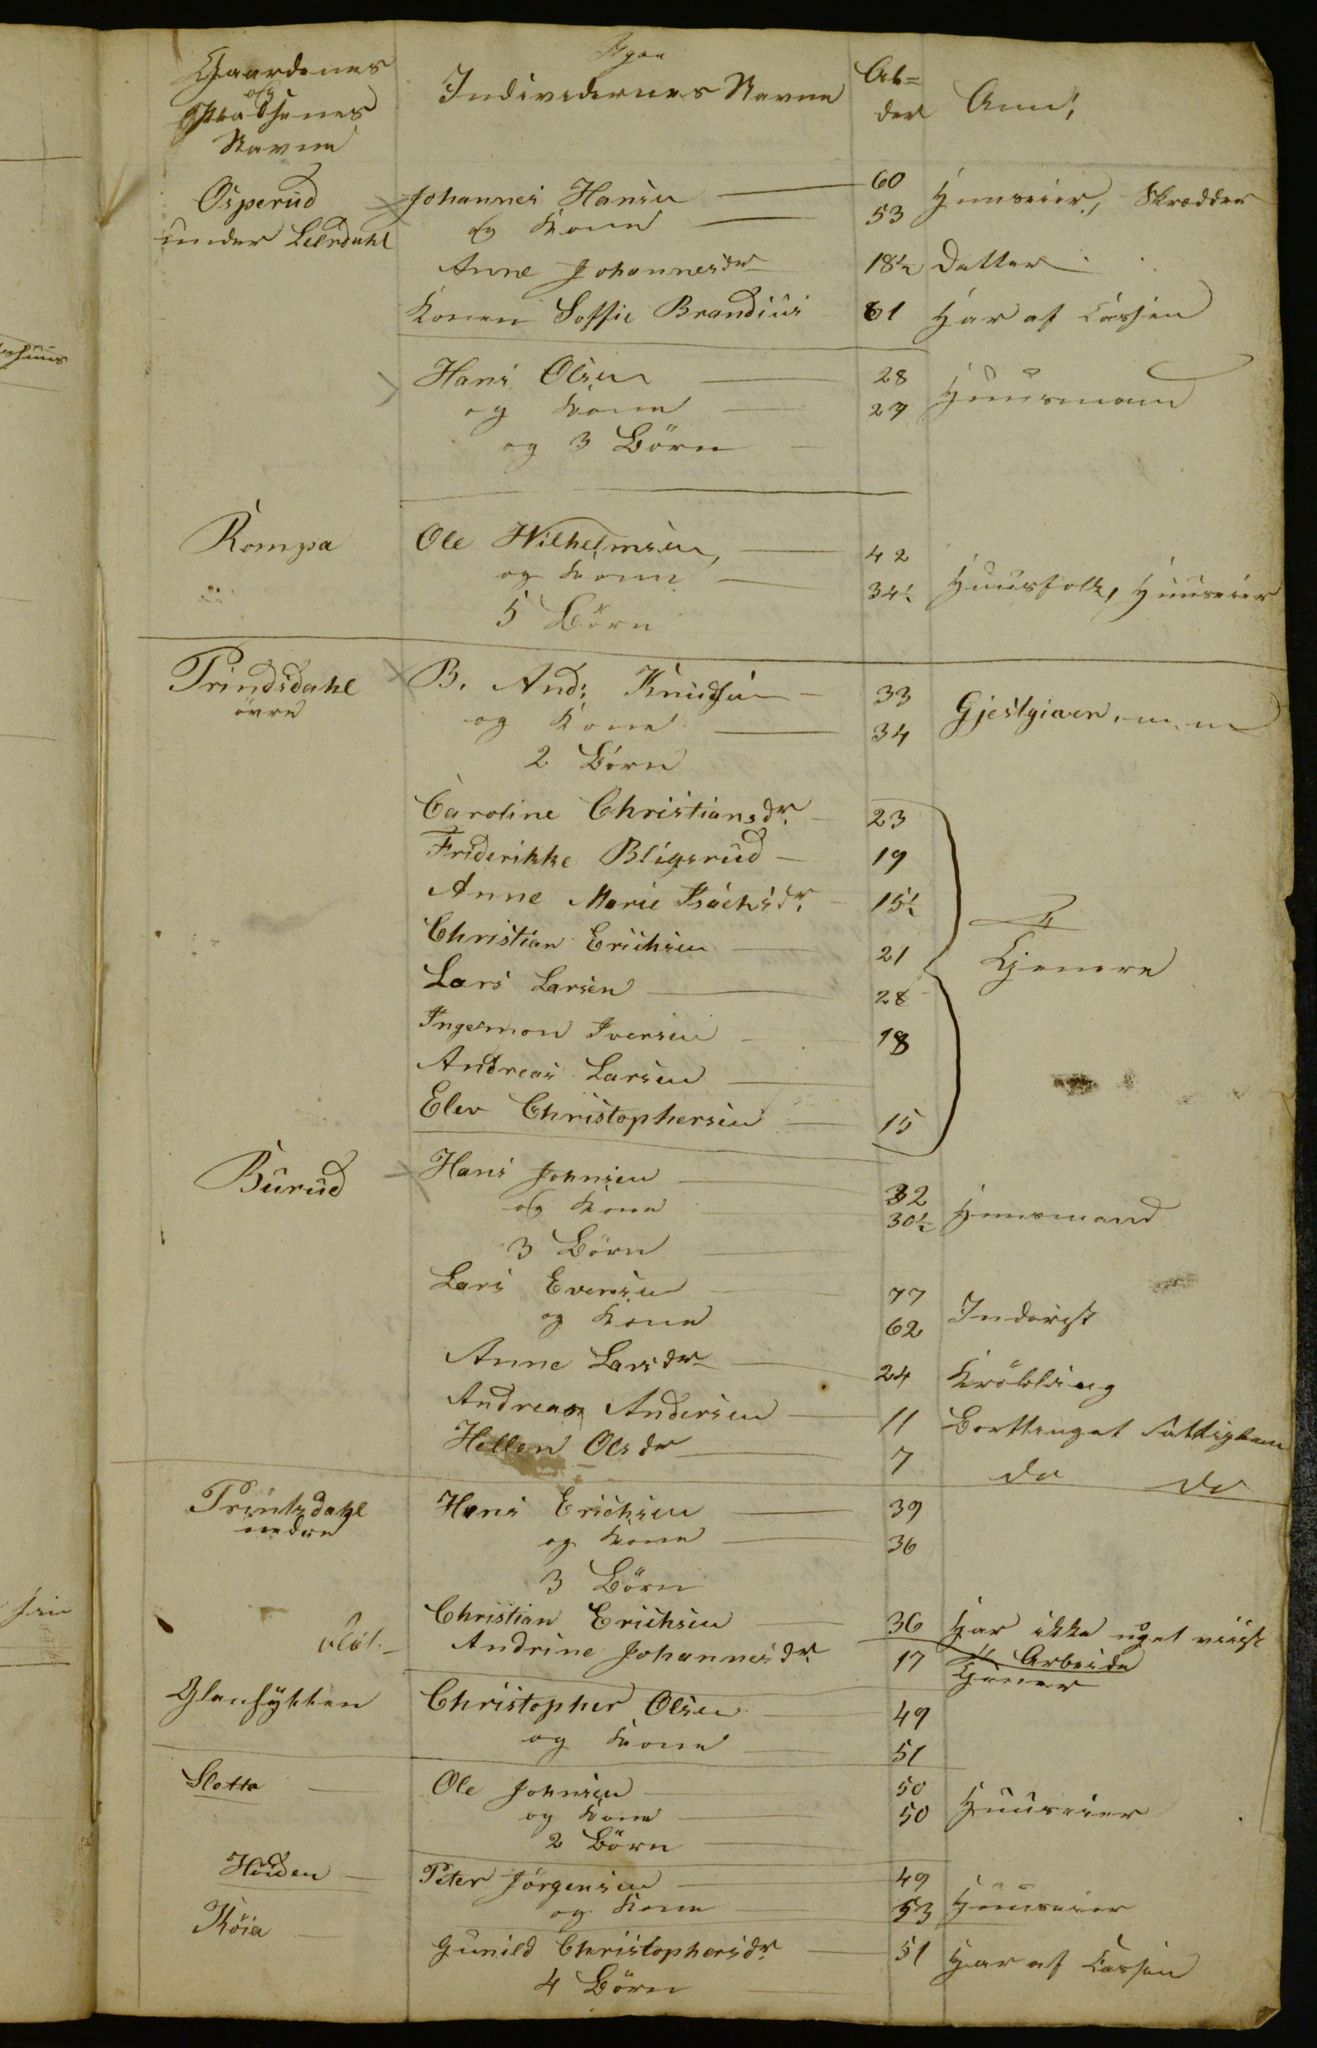 Gaardenes og Pladsenes Navne | Individernes Navne | Alder | Anm:
Osperud under Leerdahl | Johannes Hansen | 60 | Huuseier, Skrædder
og Kone | 53
Anne Johannesdr | 18½ | Datter
Konen Soffie Brandius | 61 | Har af Cassen
Hans Olsen | 28 | Huusmand
og Kone | 27
og 3 Börn
Rompa | Ole Wilhelmsen, | 42
og Kone | 34½ | Huusfolk, Huuseier
5 Börn
Prindsdahl övre | B. And: Knudsen | 33 | Gjestgiver, m. m
og Kone | 34
2 Börn
Caroline Christiansdr. | 23
Friderikke Bligsrud | 19
Anne Marie Isachsdr. | 15½
Christian Erichsen | 21 | Tjenere
Lars Larsen | 28
Ingermon Iversen | 18
Andreas Larsen
Elev Christophersen | 15
Burud | Hans Johnsen | 32 | Huusmand
og Kone | 30½
3 Börn
Lars Evensen | 77 | Inderst
og Kone | 62
Anne Larsdr | 24 | Kröbling
Andreas Andersen | 11 | Bortsinget
Hellen Olsdr | 7 | do do
Printzdahl nedre | Hans Erichsen | 39
og Kone | 36
3 Börn
Christian Erichsen | 36 | Har ikke noget viist Arbeide
Andrine Johannesdr. | 17 | Tjener
Glashytten | Christopher Olsen | 49
og Kone | 51
Slotta | Ole Johnsen | 50 | Huuseier
og Kone | 50
2 Börn
Hauden | Peter Jörgensen | 49 | Huuseier
og Kone | 53
Röia | Gunild Christophersdr. | 51 | Har af Cassen
4 Börn